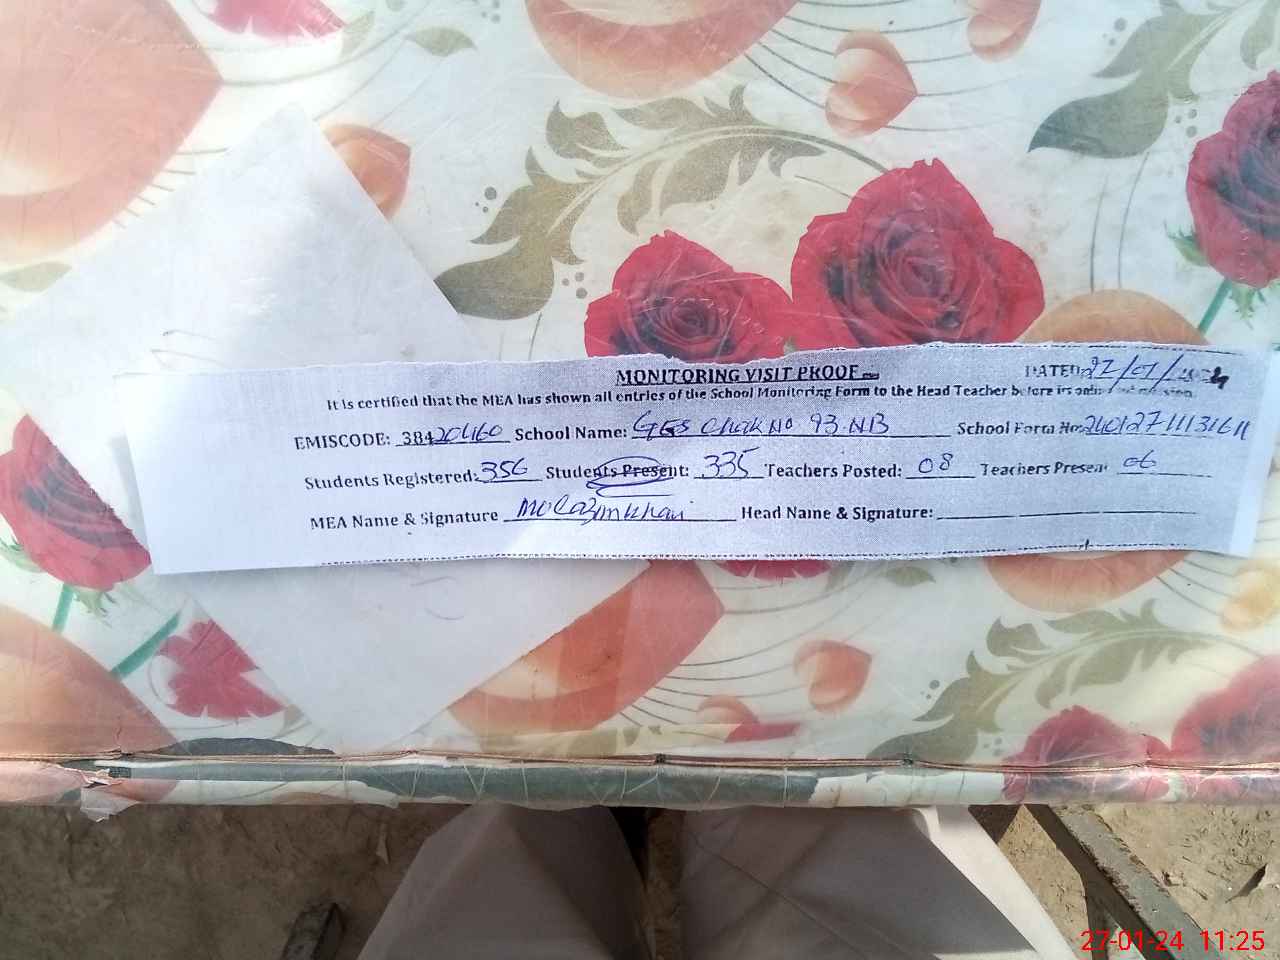 MONITORING VISIT PROOF
DATED 27/01/2024
It is certified that the MEA has shown all entries of the School Monitoring Form to the Head Teacher before its online submission.
EMISCODE: 38420460 School Name: GES Chak No 93.NB School Form No:
Students Registered: 356 Students Present: 335 Teachers Posted: 08 Teachers Present 06
MEA Name & Signature Head Name & Signature:
27-01-24 11:25